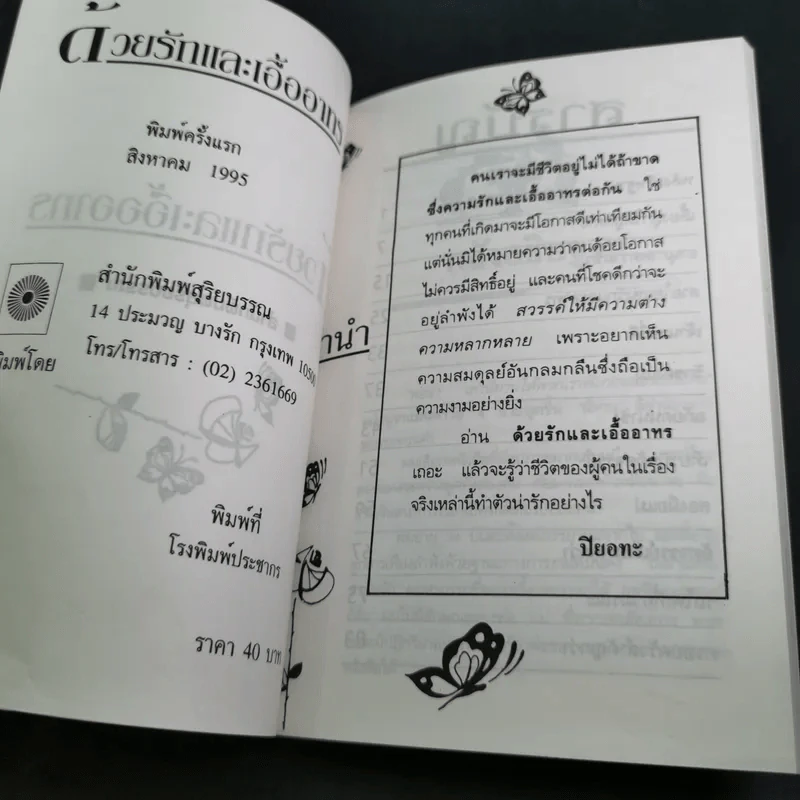 ด้วยรักและเอื้ออาทร
พิมพ์ครั้งแรก
สิงหาคม 1995
สำนักพิมพ์สุริยบรรณ
14 ประมวญ บางรัก กรุงเทพ 10500
โทร/โทรสาร : (02) 2361669
พิมพ์โดย
พิมพ์ที่
โรงพิมพ์ประชากร
ราคา 40 บาท
คำนำ
คนเราจะมีชีวิตอยู่ไม่ได้ถ้าขาด
ซึ่งความรักและเอื้ออาทรต่อกัน ใช่
ทุกคนที่เกิดมาจะมีโอกาสดีเท่าเทียมกัน
แต่นั่นมิได้หมายความว่าคนด้อยโอกาส
ไม่ควรมีสิทธิ์อยู่ และคนที่โชคดีกว่าจะ
อยู่ลำพังได้ สวรรค์ให้มีความต่าง
ความหลากหลาย เพราะอยากเห็น
ความสมดุลย์อันกลมกลืนซึ่งถือเป็น
ความงามอย่างยิ่ง
อ่าน ด้วยรักและเอื้ออาทร
เถอะ แล้วจะรู้ว่าชีวิตของผู้คนในเรื่อง
จริงเหล่านี้ทำตัวน่ารักอย่างไร
ปิยอทะ